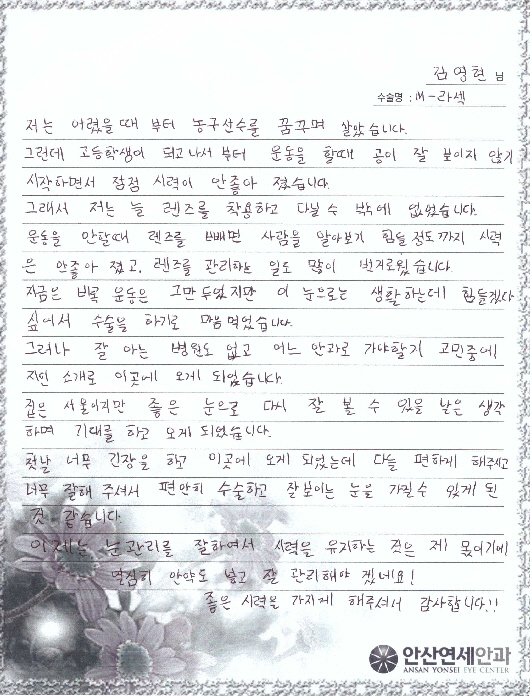 김영현 님
수술명 : M-라섹
저는 어렸을때 부터 농구선수를 꿈꾸며 살았습니다.
그런데 고등학생이 되고나서 부터 운동을 할때 공이 잘 보이지 않기
시작하면서 점점 시력이 안좋아 졌습니다.
그래서 저는 늘 렌즈를 착용하고 다닐 수 밖에 없었습니다.
운동을 안할때 렌즈를 빼면 사람을 알아보기 힘들 정도까지 시력
은 안좋아 졌고, 렌즈를 관리하는 일도 많이 번거로웠습니다.
지금은 비록 운동은 그만 두었지만 이 눈으로는 생활하는데 힘들겠다
싶어서 수술을 하기로 마음 먹었습니다.
그러나 잘 아는 병원도 없고 어느 안과로 가야할지 고민중에
지인 소개로 이곳에 오게 되었습니다.
집은 서울이지만 좋은 눈으로 다시 잘 볼 수 있을 날은 생각
하며 기대를 하고 오게 되었습니다.
첫날 너무 긴장을 하고 이곳에 오게 되었는데 다들 편하게 해주시고
너무 잘해 주셔서 편안히 수술하고 잘보이는 눈을 가질수 있게 된
것 같습니다.
이제는 눈관리를 잘하여서 시력을 유지하는 것은 제 몫이기에
열심히 안약도 넣고 잘 관리해야 겠네요!
좋은 시력을 가지게 해주셔서 감사합니다!!
안산연세안과
ANSAN YONSEI EYE CENTER